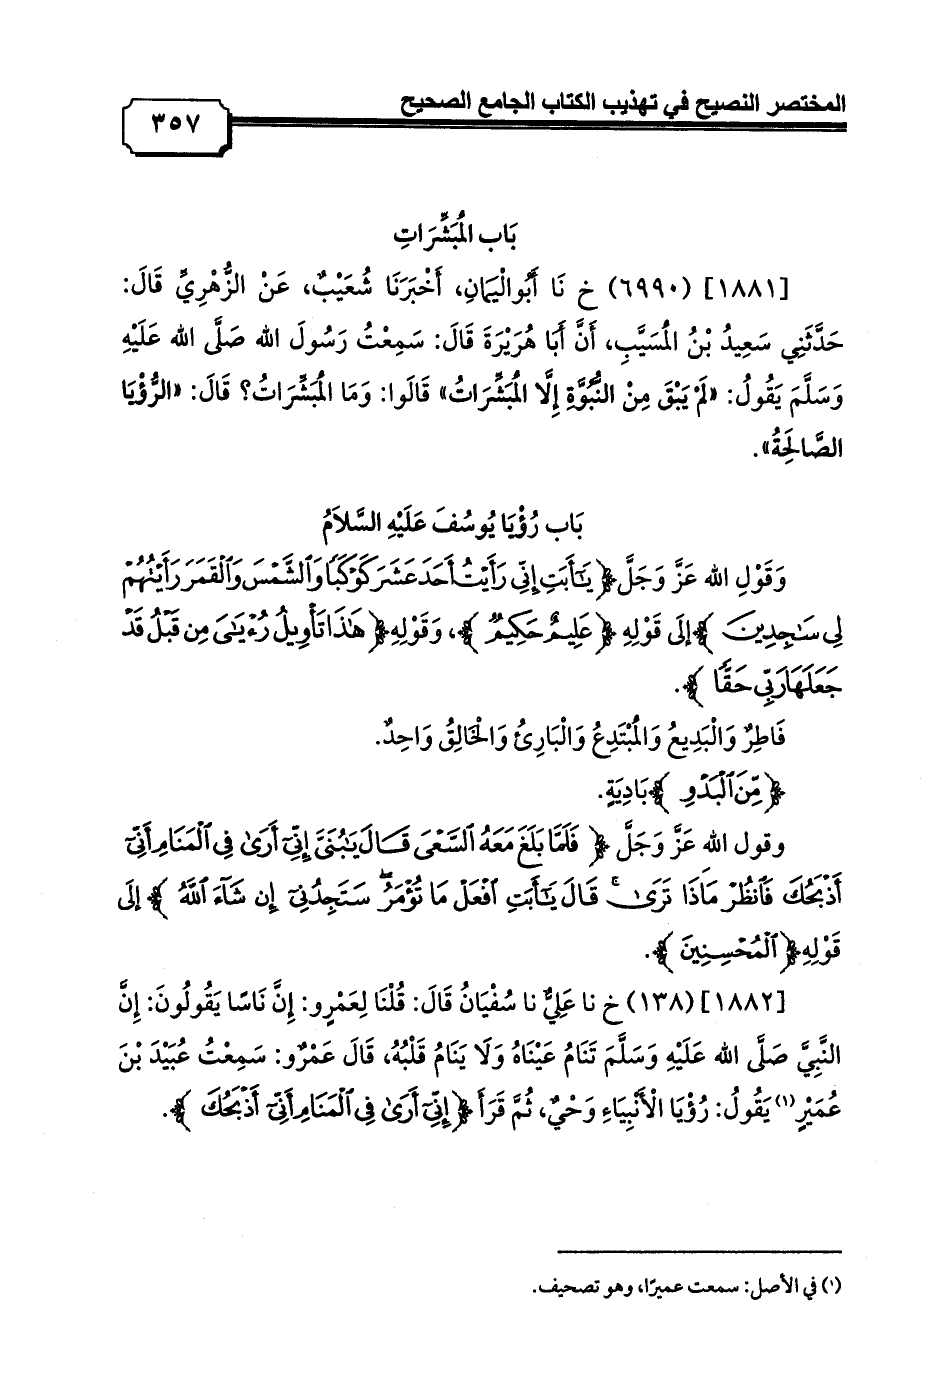 المختصر النصيح في تهذيب الكتاب الجامع الصحيح
٣٥٧
بَاب المُبَشِّرَاتِ
[١٨٨١] (٦٩٩٠) خ نَا أَبُوالْيَمَانِ، أَخْبَرَنَا شُعَيْبٌ، عَنْ الزُّهْرِيِّ قَالَ:
حَدَّثَنِي سَعِيدُ بْنُ المُسَيَّبِ، أَنَّ أَبَا هُرَيْرَةَ قَالَ: سَمِعْتُ رَسُولَ الله صَلَّى الله عَلَيْهِ
وَسَلَّمَ يَقُولُ: «لَمْ يَبْقَ مِنْ النُّبُوَّةِ إِلَّا المُبَشِّرَاتُ» قَالُوا: وَمَا المُبَشِّرَاتُ؟ قَالَ: «الرُّؤْيَا
الصَّالِحَةُ».
بَاب رُؤْيَا يُوسُفَ عَلَيْهِ السَّلَامُ
وَقَوْلِ الله عَزَّ وَجَلَّ ﴿ يَٰٓأَبَتِ إِنِّي رَأَيْتُ أَحَدَ عَشَرَ كَوْكَبًا وَٱلشَّمْسَ وَٱلْقَمَرَ رَأَيْتُهُمْ
لِي سَٰجِدِينَ ﴾ إِلَى قَوْلِهِ ﴿ عَلِيمٌ حَكِيمٌ ﴾، وَقَوْلِهِ ﴿ هَٰذَا تَأْوِيلُ رُءْيَٰىَ مِن قَبْلُ قَدْ
جَعَلَهَا رَبِّي حَقًّا ﴾.
فَاطِرٌ وَالْبَدِيعُ وَالمُبْتَدِعُ وَالْبَارِئُ وَالْخَالِقُ وَاحِدٌ.
﴿ مِّنَ ٱلْبَدْوِ ﴾ بَادِيَةٍ.
وقول الله عَزَّ وَجَلَّ ﴿ فَلَمَّا بَلَغَ مَعَهُ ٱلسَّعْىَ قَالَ يَٰبُنَىَّ إِنِّىٓ أَرَىٰ فِى ٱلْمَنَامِ أَنِّىٓ
أَذْبَحُكَ فَٱنظُرْ مَاذَا تَرَىٰ ۚ قَالَ يَٰٓأَبَتِ ٱفْعَلْ مَا تُؤْمَرُ ۖ سَتَجِدُنِىٓ إِن شَآءَ ٱللَّهُ ﴾ إِلَى
قَوْلِهِ ﴿ ٱلْمُحْسِنِينَ ﴾.
[١٨٨٢] (١٣٨) خ نا عَلِيٌّ نا سُفْيَانُ قَالَ: قُلْنَا لِعَمْرٍو: إِنَّ نَاسًا يَقُولُونَ: إِنَّ
النَّبِيَّ صَلَّى الله عَلَيْهِ وَسَلَّمَ تَنَامُ عَيْنَاهُ وَلَا يَنَامُ قَلْبُهُ، قَالَ عَمْرٌو: سَمِعْتُ عُبَيْدَ بْنَ
عُمَيْرٍ(١) يَقُولُ: رُؤْيَا الْأَنْبِيَاءِ وَحْيٌ، ثُمَّ قَرَأَ ﴿ إِنِّىٓ أَرَىٰ فِى ٱلْمَنَامِ أَنِّىٓ أَذْبَحُكَ ﴾.
(١) في الأصل: سمعت عميرًا، وهو تصحيف.